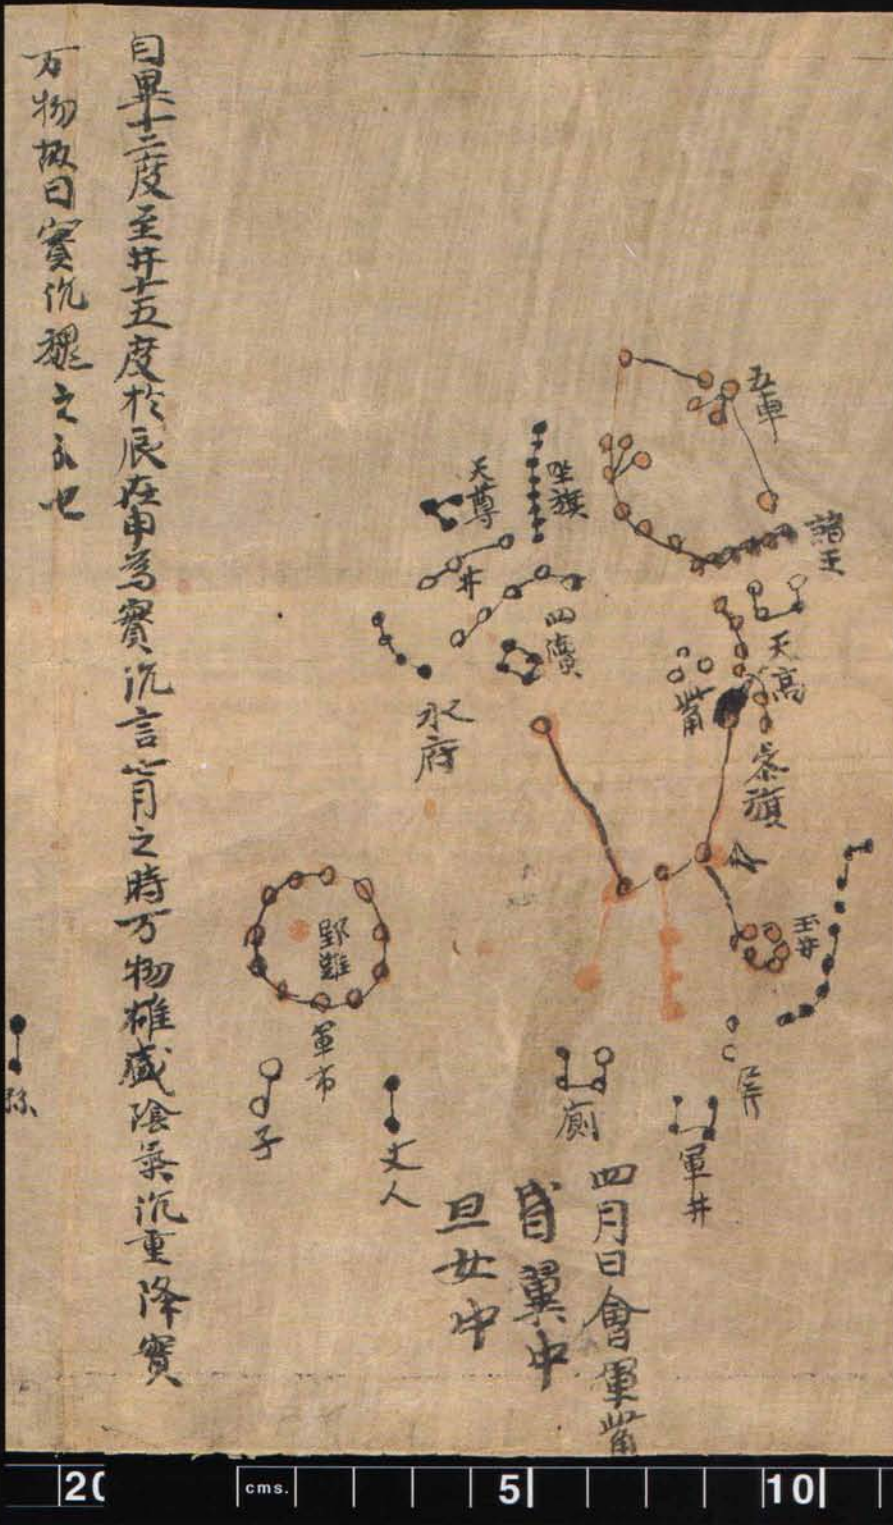 五車
諸王
坐旗
天尊
井
四瀆
天高
觜
水府
參旗
玉井
野雞
軍市
子
丈人
廁
屏
軍井
孫
四月日會軍觜
昏翼中
旦女中
自畢十二度至井十五度於辰在申為實沉言七月之時万物雄盛陰氣沉重降實
万物故曰實沉魏之分也
20 cms. 5 10